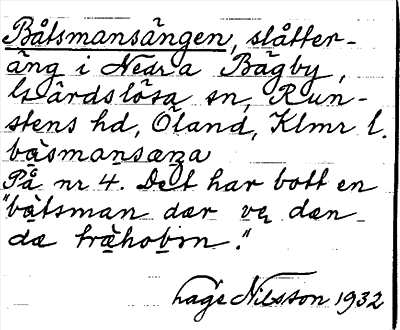 Båtsmansängen, slåtter-
äng i Nedra Bägby,
Gärdslösa sn, Run-
stens hd, Öland, Klmr l.
båsmansæŋa
På nr 4. Det har bott en
"båtsman dær ve dæn
dæ træhobin."
Hage Nilsson 1932